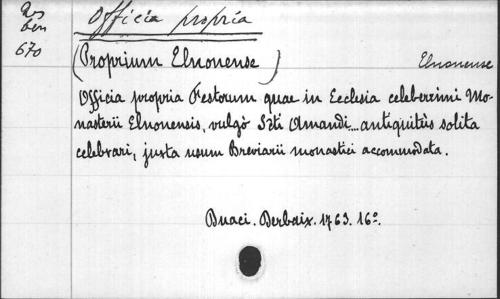 Res
ben
670
Officia propria
(Proprium Elnonense)
Elnonense
Officia propria Festorum quae in Ecclesia celeberrimi Mo-
nasterii Elnonensis, vulgò Sti Amandi... antiquitùs solita
celebrari, juxta usum Breviarii monastici accommodata.
Duaci. Derbaix. 1763. 16o.